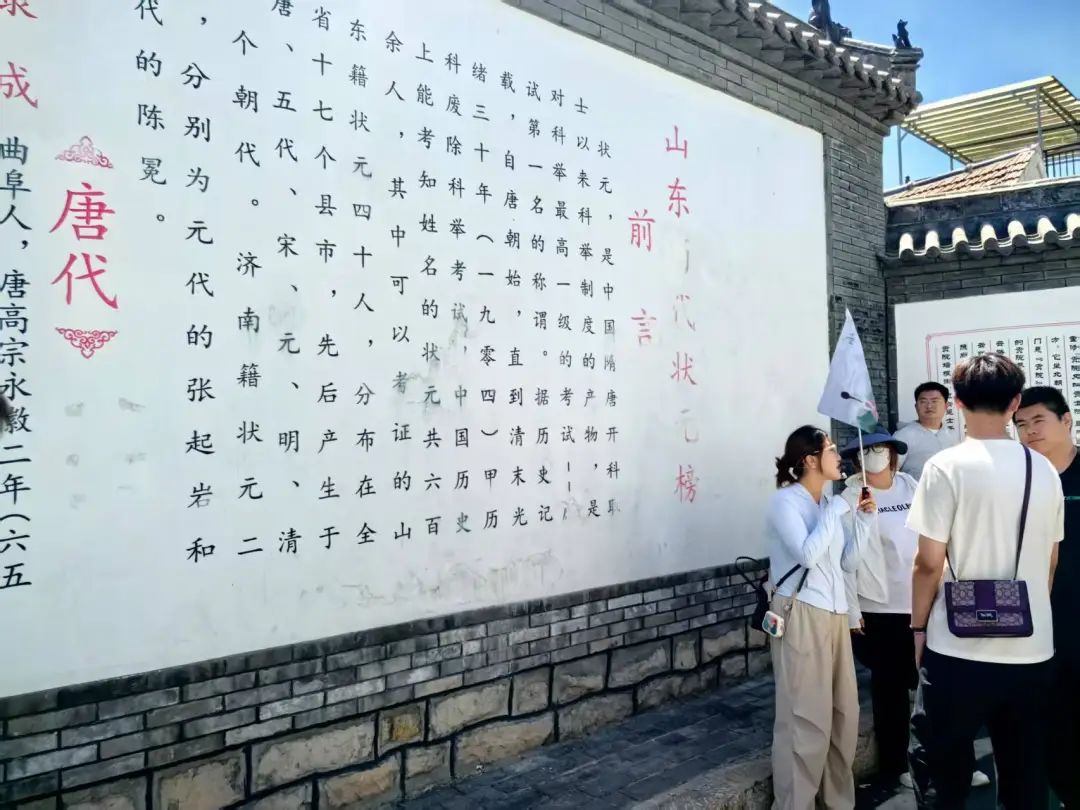 山东历代状元榜
前言
状元，是中国隋唐开科取
士以来科举制度的产物，是
对科举最高一级的考试——
试第一名的称谓。据历史记
载，自唐朝始，直到清末光
绪三十年（一九零四）甲历
科废除科举考试，中国历史
上能考知姓名的状元共六百
余人，其中可以考证的山
东籍状元四十人，分布在全
省十七个县市，先后产生于
唐、五代、宋、元、明、清
个朝代。济南籍状元二
，分别为元代的张起岩和
代的陈冕。
唐代
成
曲阜人，唐高宗永徽二年（六五